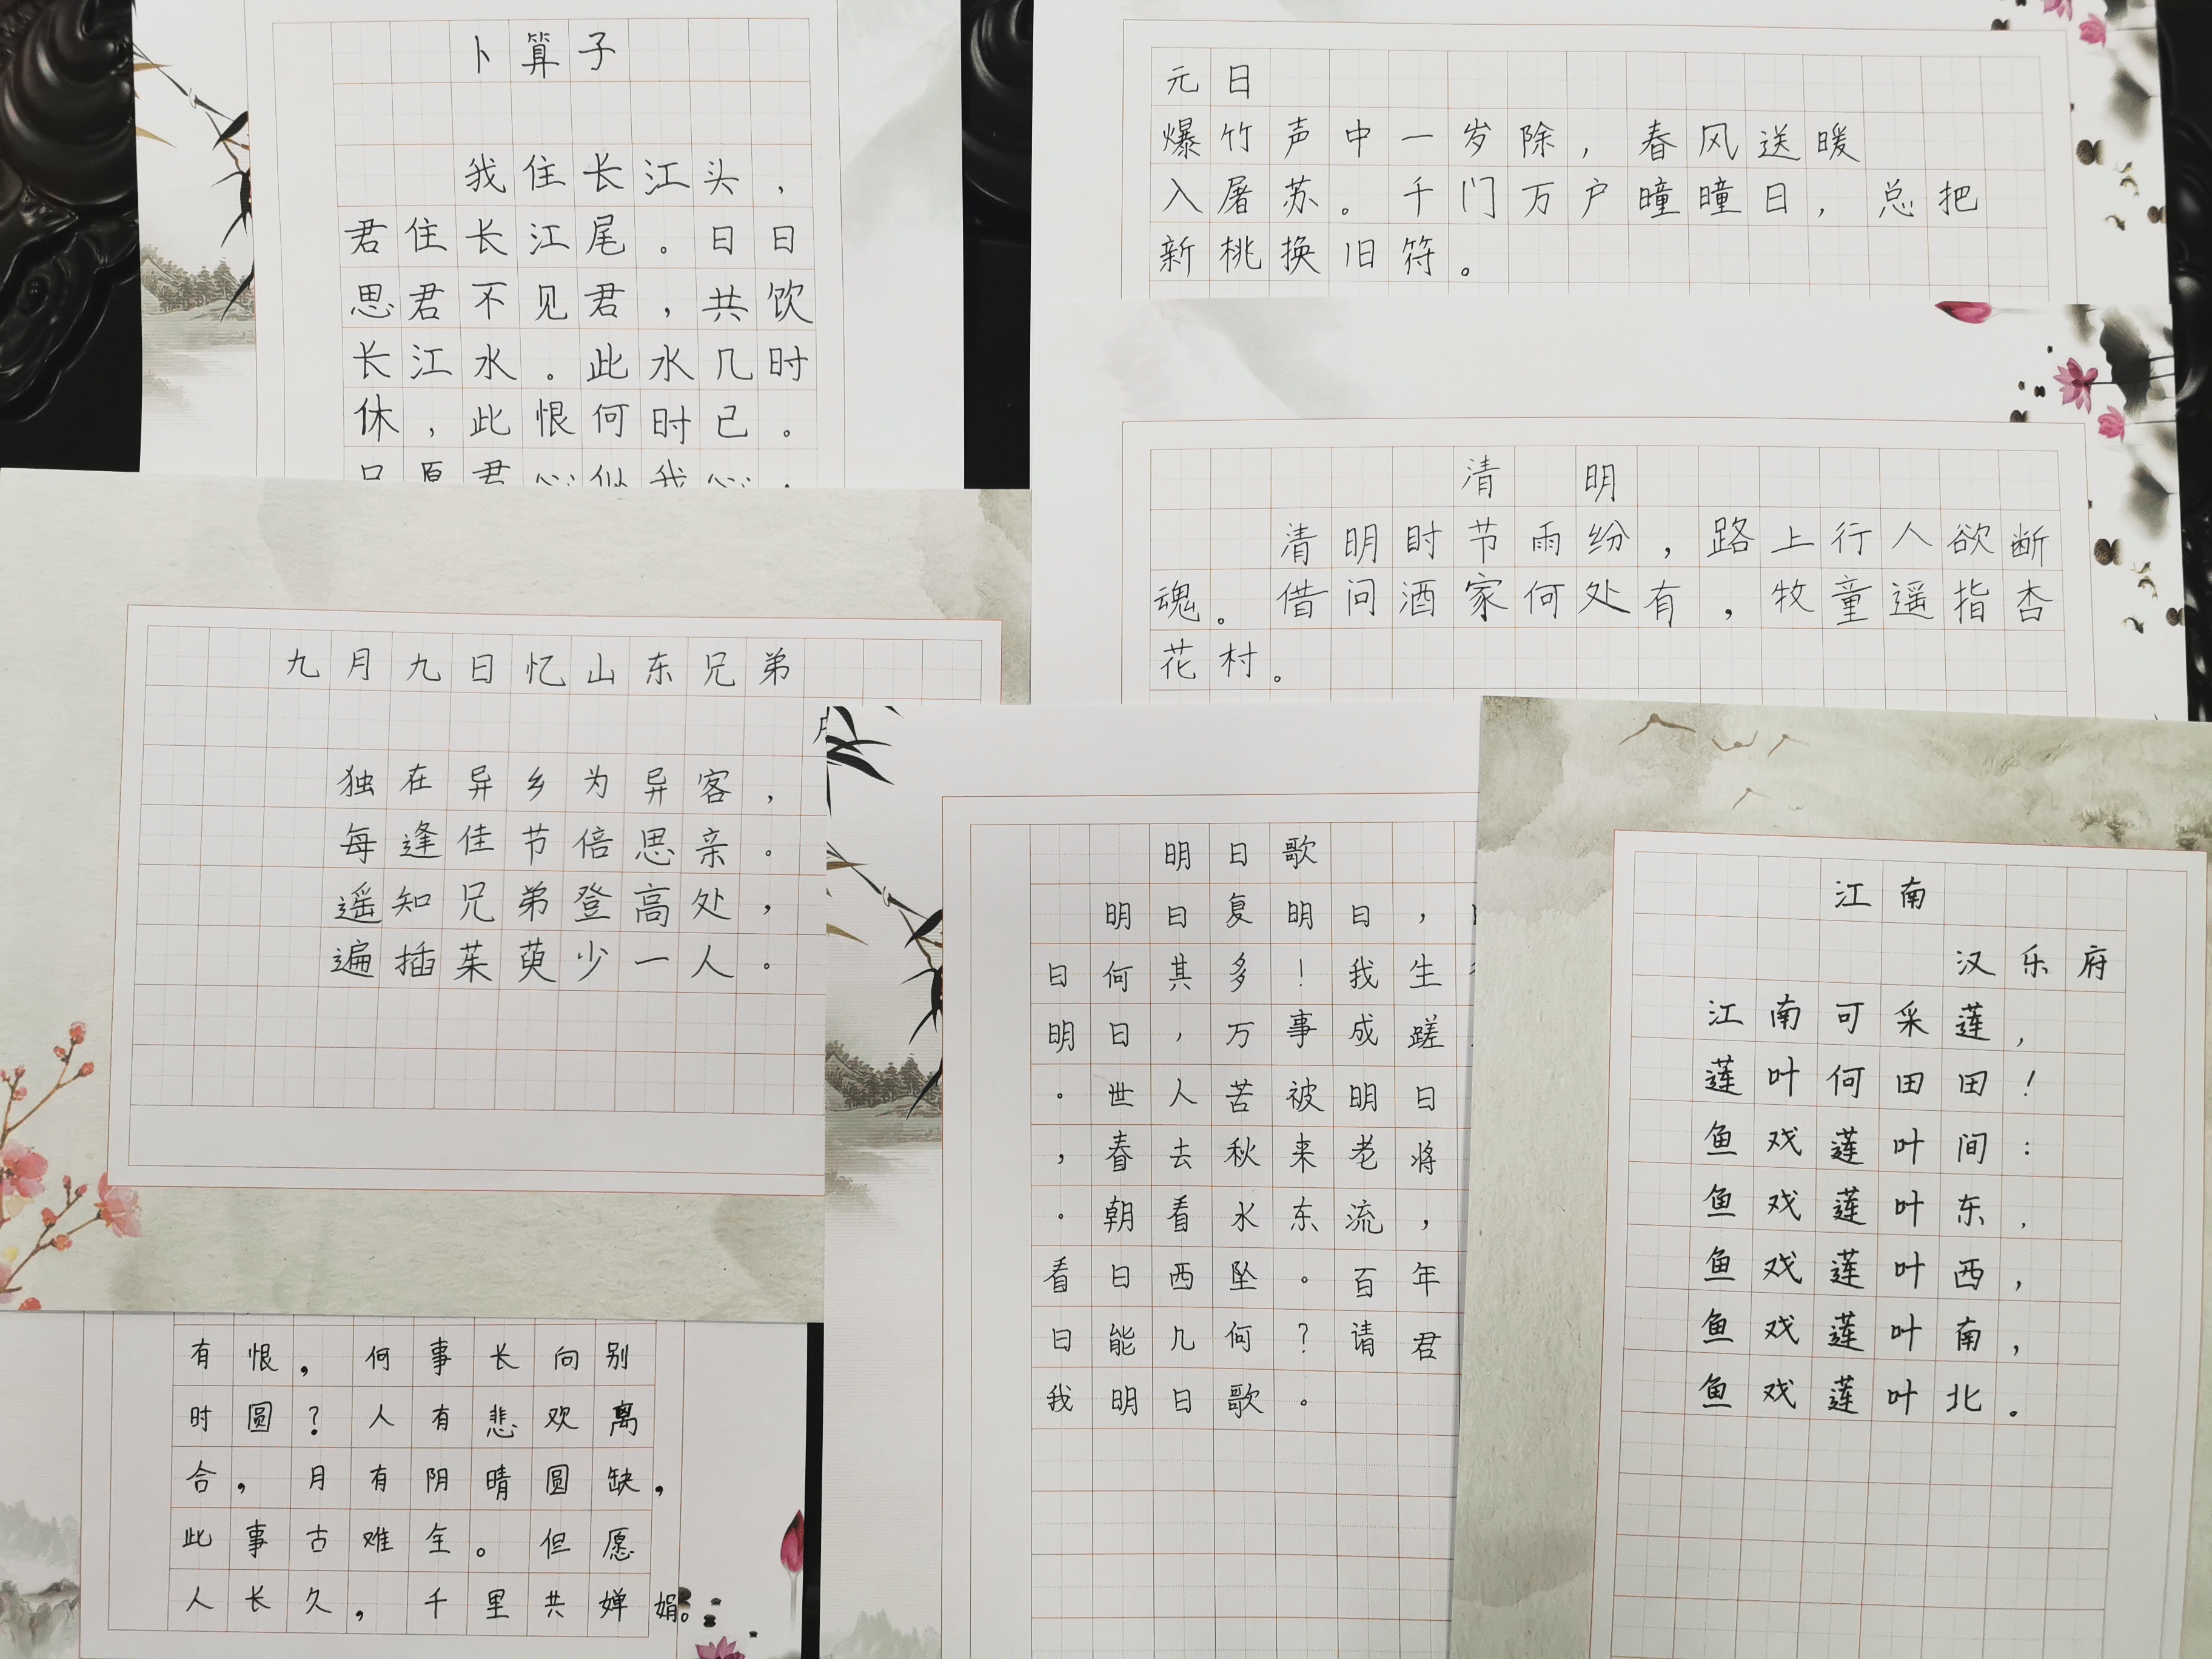 卜算子
我住长江头，
君住长江尾。日日
思君不见君，共饮
长江水。此水几时
休，此恨何时已。
只愿君心似我心，
元日
爆竹声中一岁除，春风送暖
入屠苏。千门万户曈曈日，总把
新桃换旧符。
清明
清明时节雨纷，路上行人欲断
魂。借问酒家何处有，牧童遥指杏
花村。
九月九日忆山东兄弟
独在异乡为异客，
每逢佳节倍思亲。
遥知兄弟登高处，
遍插茱萸少一人。
明日歌
明日复明日，
日何其多！我生
明日，万事成蹉
。世人苦被明日
，春去秋来老将
。朝看水东流，
看日西坠。百年
日能几何？请君
我明日歌。
江南
汉乐府
江南可采莲，
莲叶何田田！
鱼戏莲叶间：
鱼戏莲叶东，
鱼戏莲叶西，
鱼戏莲叶南，
鱼戏莲叶北。
有恨，何事长向别
时圆？人有悲欢离
合，月有阴晴圆缺，
此事古难全。但愿
人长久，千里共婵娟。